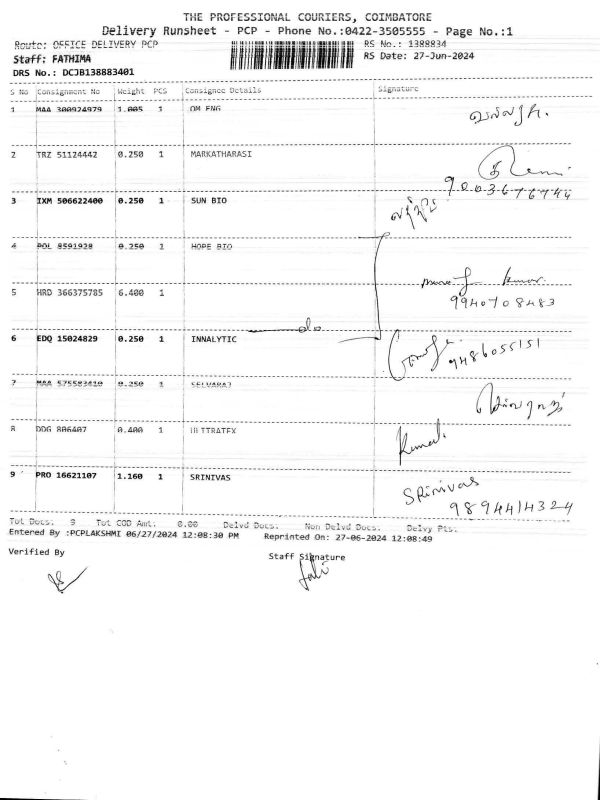 THE PROFESSIONAL COURIERS, COIMBATORE
Delivery Runsheet - PCP - Phone No.:0422-3505555 - Page No.:1
Route: OFFICE DELIVERY PCP RS No.: 1388834
Staff: FATHIMA RS Date: 27-Jun-2024
DRS No.: DCJB138883401
S No Consignment No Weight PCS Consignee Details Signature
1 MAA 300924979 1.005 1 OM ENG
2 TRZ 51124442 0.250 1 MARKATHARASI
9003676744
3 IXM 506622400 0.250 1 SUN BIO
4 POL 8591928 0.250 1 HOPE BIO
kumar
5 HRD 366375785 6.400 1 9940708483
do
6 EDQ 15024829 0.250 1 INNALYTIC 9486055151
7 MAA 575583410 0.250 1 SELVARAJ
8 DDG 806407 0.400 1 ULTTRATEX Kumal
9 PRO 16621107 1.160 1 SRINIVAS SRinivas
9894414324
Tot Docs: 9 Tot COD Amt: 0.00 Delvd Docs: Non Delvd Docs: Delvy Pts:
Entered By :PCPLAKSHMI 06/27/2024 12:08:30 PM Reprinted On: 27-06-2024 12:08:49
Verified By Staff Signature